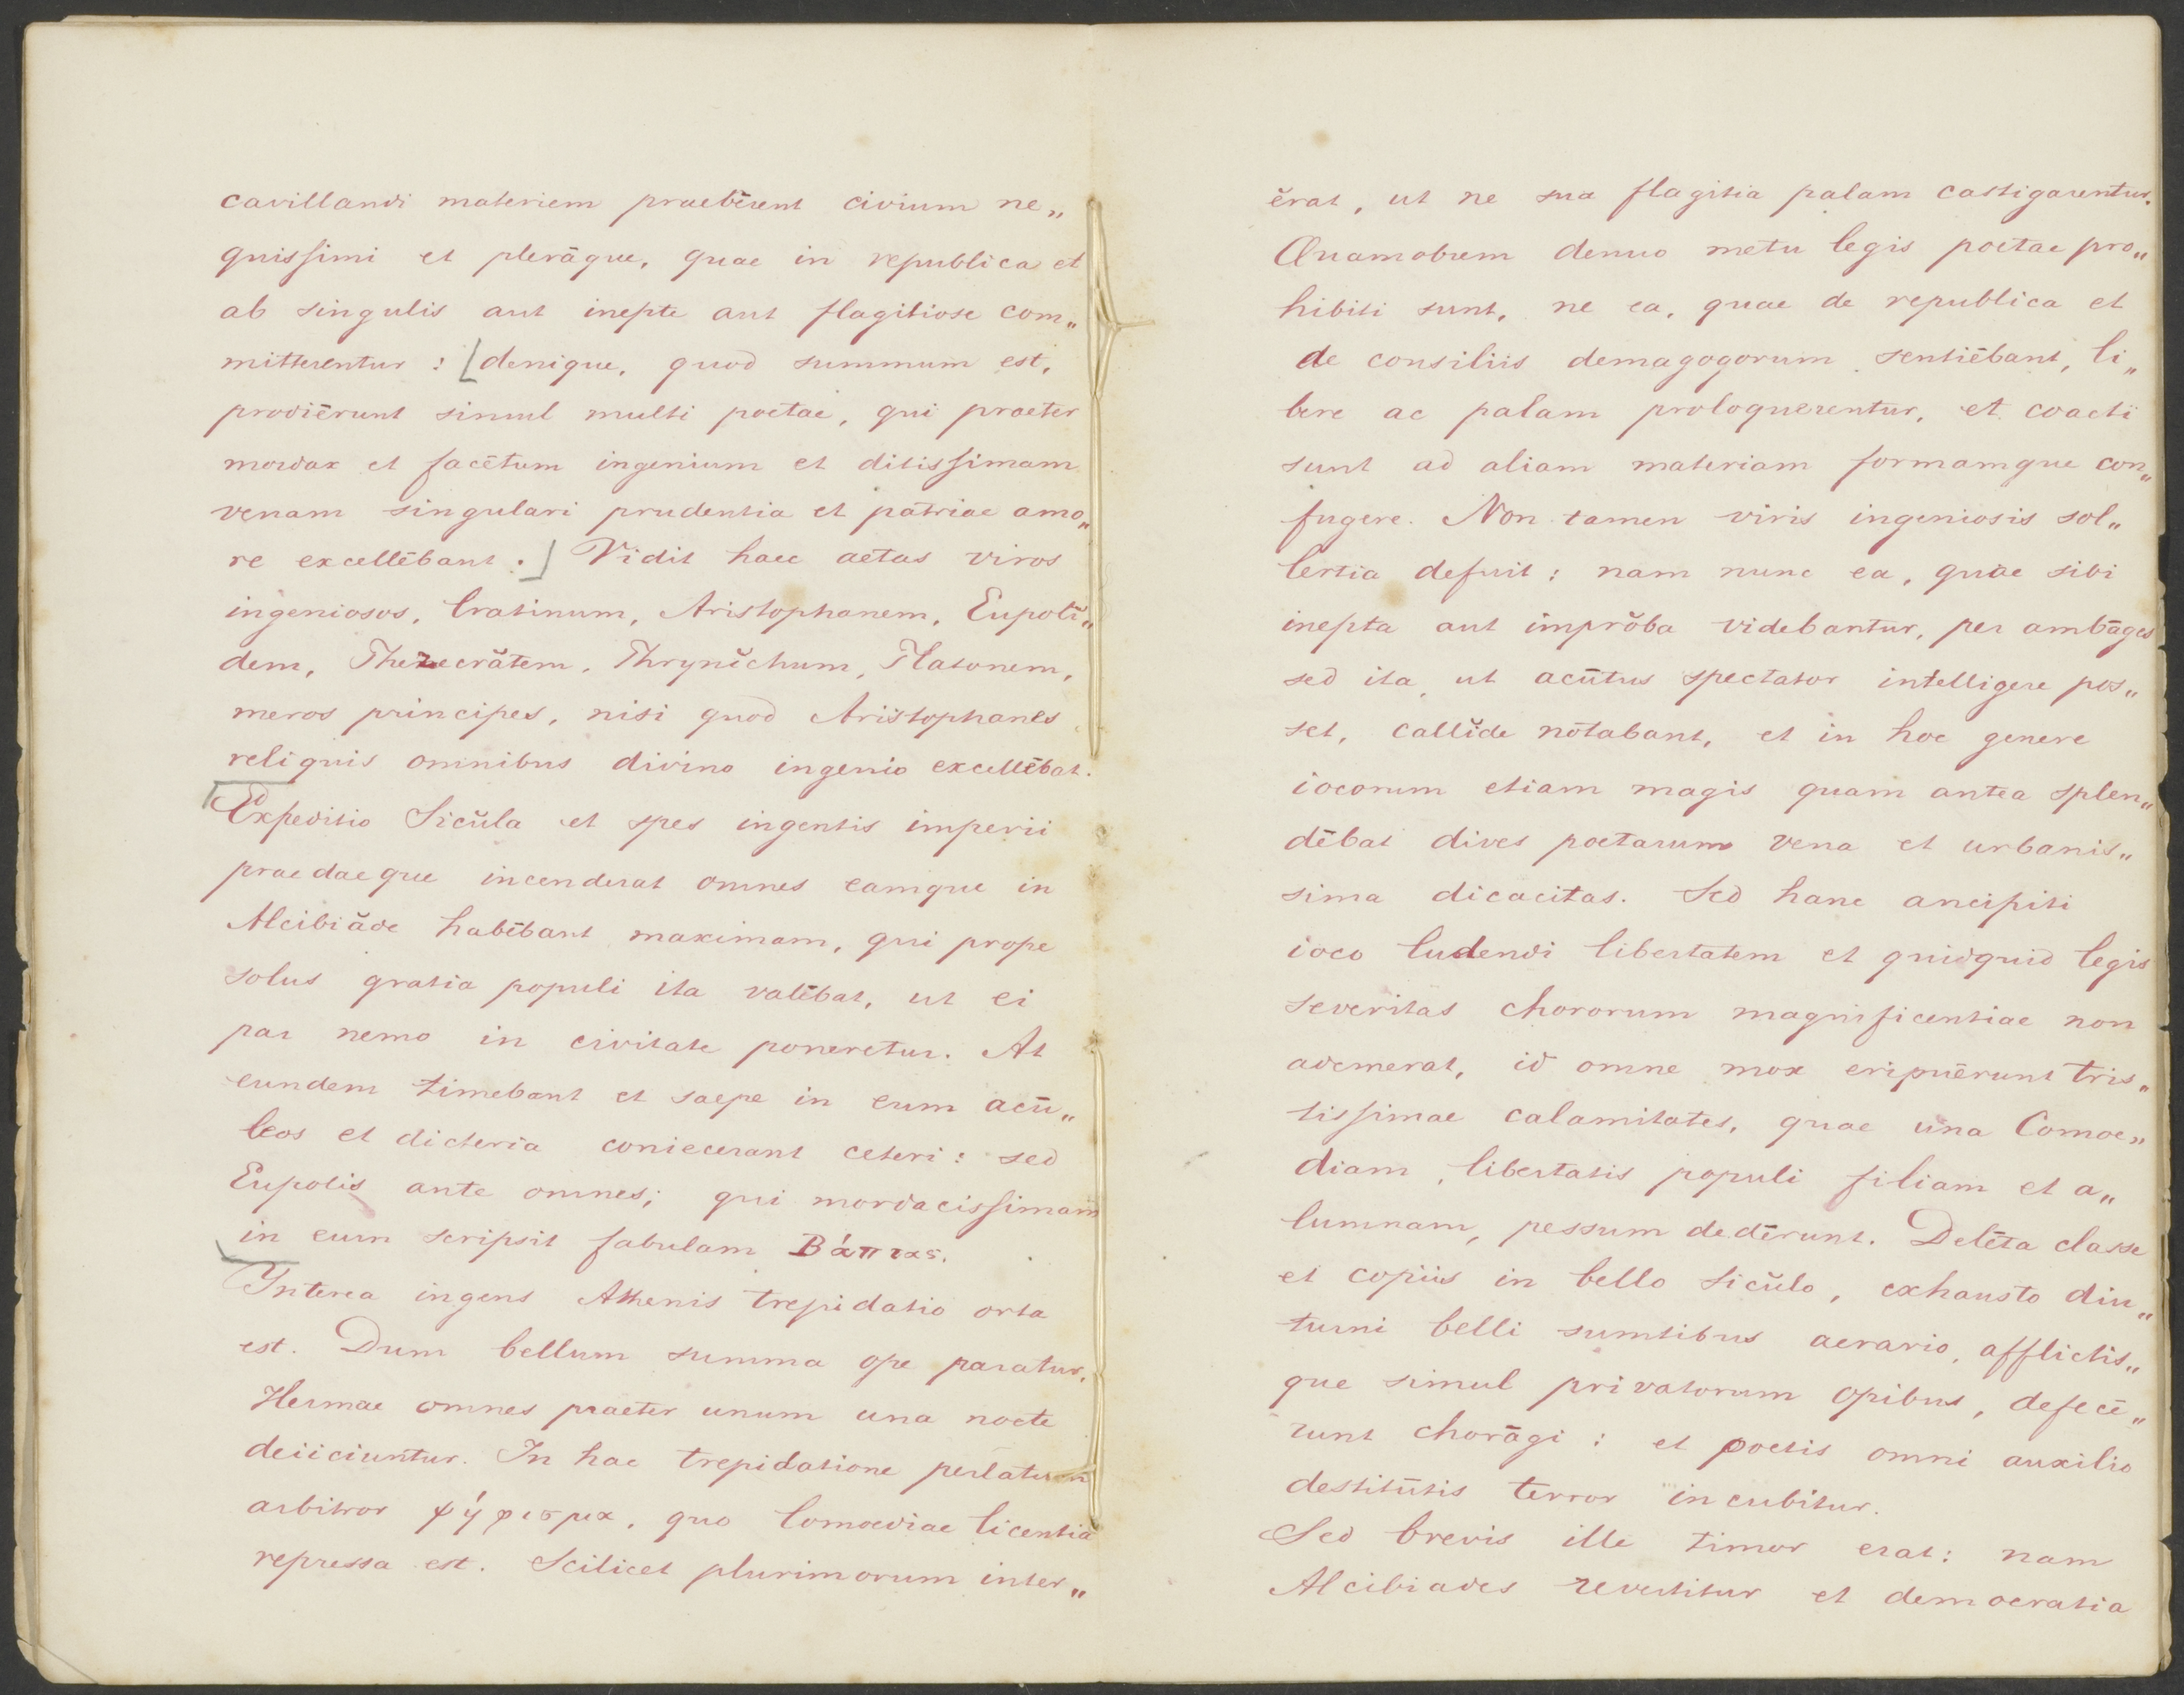 cavillandi materiem praebērent civium ne„
quissimi et plerāque, quae in republica et
ab singulis aut inepte aut flagitiose com„
mitterentur : [denique, quod summum est,
prodiērunt simul multi poëtae, qui praeter
mordax et facētum ingenium et ditissimam
venam singulari prudentia et pātriae amo„
re excellēbant.] Vidit haec aetas viros
ingeniosos, Cratinum, Aristophanem, Eupolĭ„
dem, Pherecrătem, Phrynĭchum, Platonem,
meros principes, nisi quod Aristophanes
reliquis omnibus divino ingenio excellēbat.
Expeditio Sicŭla et spes ingentis imperii
praedaeque incenderat omnes eamque in
Alcibiăde habēbant maximam, qui prope
solus gratia populi ita valēbat, ut ei
par nemo in civitate poneretur. At
eundem timebant et saepe in eum acū„
leos et dicteria coniecerant ceteri : sed
Eupolis ante omnes; qui mordacissimam
in eum scripsit fabulam Βάπτας.
Interea ingens Athenis trepidatio orta
est. Dum bellum summa ope paratur,
Hermae omnes praeter unum una nocte
deiiciuntur. In hac trepidatione perlatum
arbitror ψήφισμα, quo Comoediae licentia
repressa est. Scilicet plurimorum inter„
ĕrat, ut ne sua flagitia palam castigarentur.
Quamobrem denuo metu legis poetae pro„
hibiti sunt, ne ea, quae de republica et
de consiliis demagogorum sentiēbant, li„
bere ac palam proloquerentur, et coacti
sunt ad aliam materiam formamque con„
fugere. Non tamen viris ingeniosis sol„
lertia defuit : nam nunc ea, quae sibi
inepta aut imprŏba videbantur, per ambāges
sed ita, ut acūtus spectator intelligere pos„
set, callĭde nōtabant, et in hoc genere
iocorum etiam magis quam antea splen„
dēbat dives poetarum vena et urbanis„
sima dicacitas. Sed hanc ancipiti
ioco ludendi libertatem et quidquid legis
severitas chororum magnificentiae non
ademerat, id omne mox eripuērunt tris„
tissimae calamitates, quae una Comoe„
diam, libertatis populi filiam et a„
lumnam, pessum dedērunt. Delēta classe
et copiis in bello Sicŭlo, exhausto diu„
turni belli sumtibus aerario, afflictis„
que simul privatorum opibus, defecē„
runt chorāgi : et poetis omni auxilio
destitūtis terror incubitur.
Sed brevis ille timor erat : nam
Alcibiades revertitur et democratia